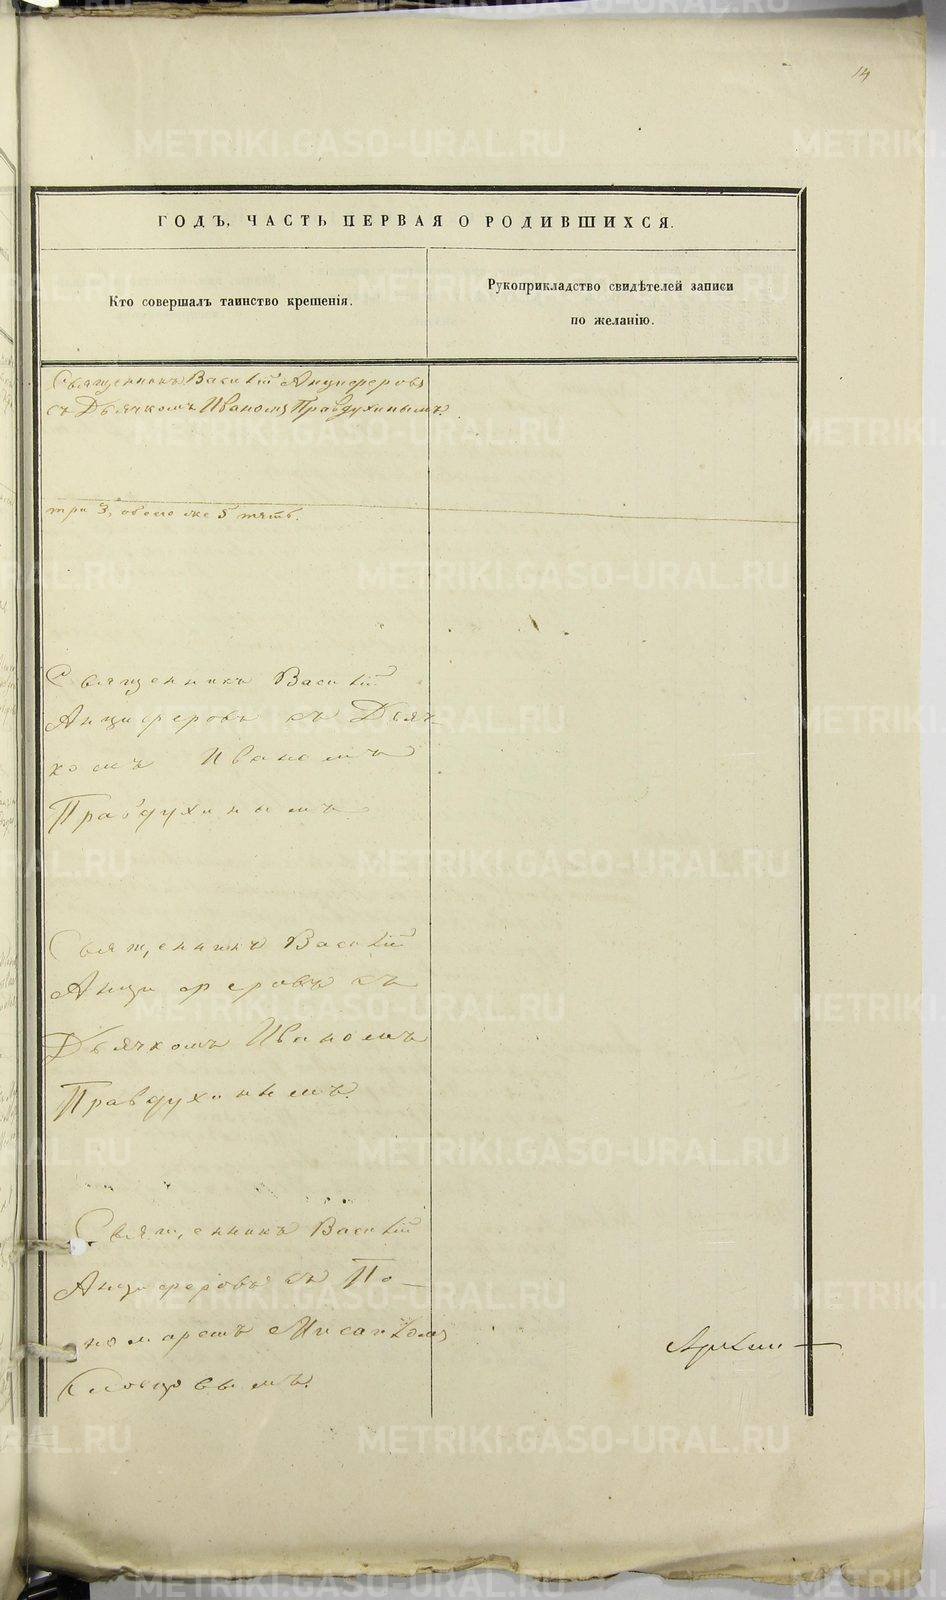 14
ГОДЪ, ЧАСТЬ ПЕРВАЯ О РОДИВШИХСЯ.
Кто совершалъ таинство крещенія.
Рукоприкладство свидѣтелей записи
по желанію.
Священникъ Василій Анциферовъ
съ Дьячкомъ Иваномъ Правдухинымъ.
три 3, обоего же 5 пять.
Священникъ Василій
Анциферовъ съ Дьяч-
комъ Иваномъ
Правдухинымъ
Священникъ Василій
Анциферовъ съ
Дьячкомъ Иваномъ
Правдухинымъ.
Священникъ Василій
Анциферовъ съ По-
номаремъ
Словцовымъ.
METRIKI.GASO-URAL.RU